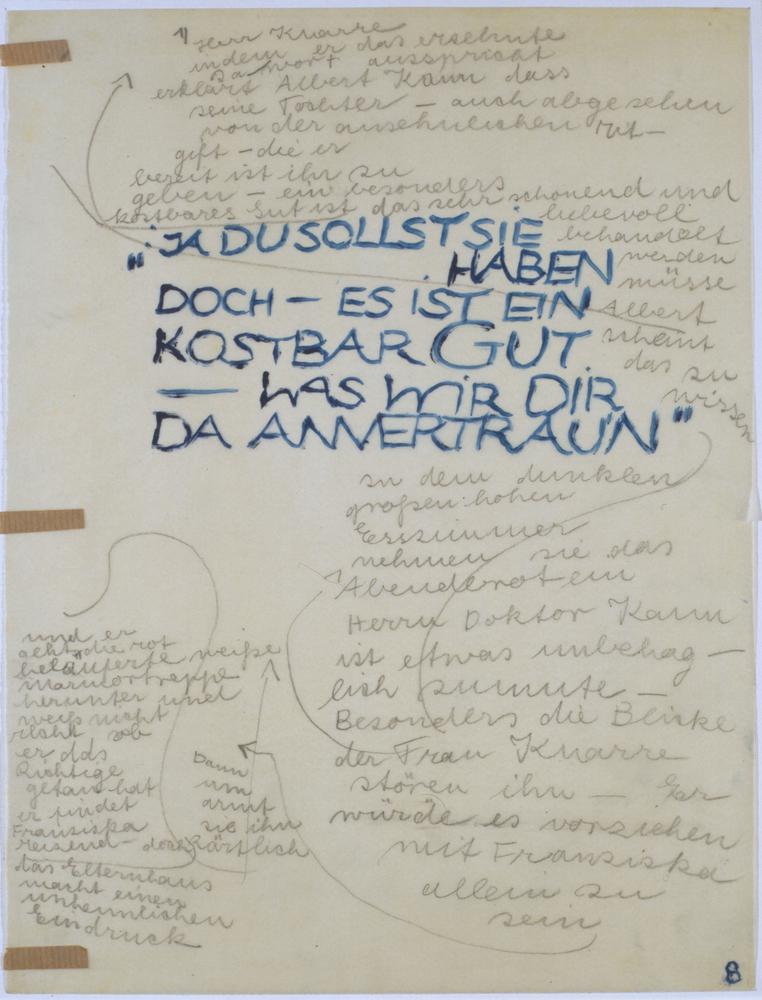 Herr Knarre
indem er das ersehnte
Ja wort ausspricht
erklärt Albert Kann dass
seine Tochter – auch abgesehen
von der ansehnlichen Mit–
gift – die er
bereit ist ihr zu
geben – ein besonders
kostbares Gut ist das sehr schonend und
liebevoll
behandelt
werden
müsse
Albert
scheint
das zu
wissen
"JA DU SOLLST SIE
HABEN
DOCH – ES IST EIN
KOSTBAR GUT
– WAS WIR DIR
DA ANVERTRAUN"
in dem dunklen
großen hohen
Esszimmer
nehmen sie das
Abendbrot ein
Herrn Doktor Kann
ist etwas unbehag–
lich zumute –
Besonders die Blicke
der Frau Knarre
stören ihn – Er
würde es vorziehen
mit Franziska
allein zu
sein
Dann
um
armt
sie ihn
zärtlich
und er
geht die rot
beläuferte weiße
Marmortreppe
herunter und
weiß nicht
recht ob
er das
Richtige
getan hat
er findet
Franziska
reizend – doch
das Elternhaus
macht einen
unheimlichen
Eindruck
8